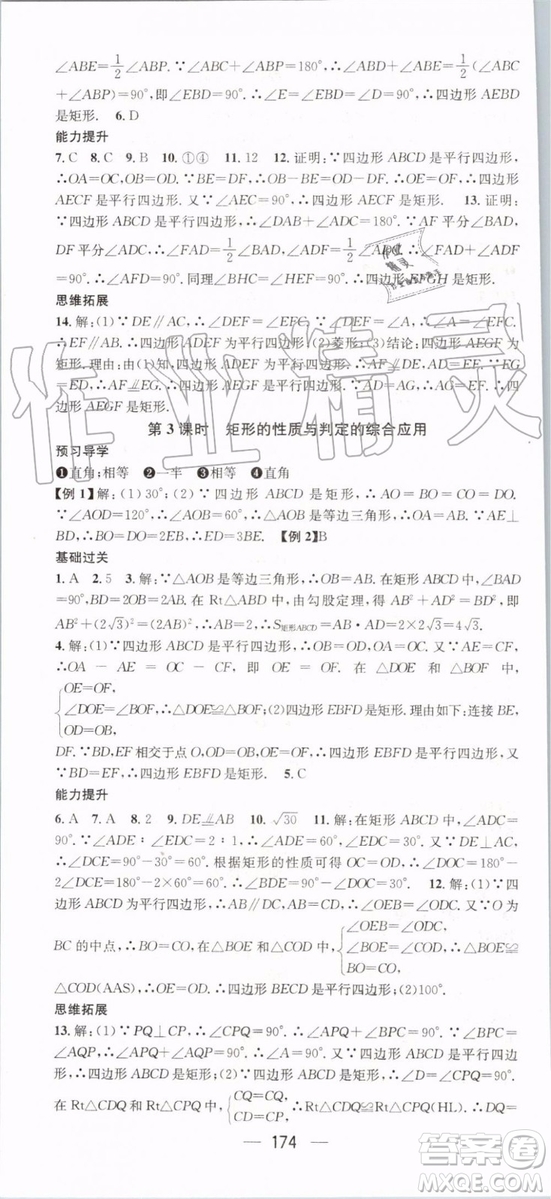 ∠ABE=1/2∠ABP.∵∠ABC+∠ABP=180°,∴∠ABD+∠ABE=1/2(∠ABC
+∠ABP)=90°,即∠EBD=90°.∴∠E=∠EBD=∠ADB=90°.∴四边形 AEBD
是矩形. 6. D
能力提升
7. C 8. C 9. B 10. ①④ 11. 12 12. 证明:∵四边形 ABCD 是平行四边形,
∴OA=OC,OB=OD.∵BE=DF,∴OB-BE=OD-DF.∴OE=OF.∴四边形
AECF 是平行四边形.又∵∠AEC=90°,∴四边形 AECF 是矩形. 13. 证明:
∵四边形 ABCD 是平行四边形,∴∠BAD+∠ADC=180°.∵AF 平分∠BAD,
DF 平分∠ADC,∴∠FAD=1/2∠BAD,∠ADF=1/2∠ADC.∴∠FAD+∠ADF=
90°.∴∠AFD=90°.同理∠BHC=∠HEF=90°.∴四边形 EFGH 是矩形.
思维拓展
14. 解:(1)∵DE∥AC,∴∠DEF=∠AEF.∵∠DEF=∠A,∴∠AEF=∠EFC.
∴EF∥AB.∴四边形 AEDF 为平行四边形;(2)菱形;(3)结论:四边形 AEGF 为
矩形.理由:由(1)知,四边形 AEDF 为平行四边形,∴AF∥DE.又∵EG
=ED,∴AF∥EG.∴四边形 AEGF 是平行四边形.又∵AD=EG,∴四边形
AEGF 是矩形.
第 3 课时 矩形的性质与判定的综合应用
预习导学
❶直角;相等 ❷一半 ❸直角;相等 ❹直角
【例 1】解:(1)30°;(2)∵四边形 ABCD 是矩形,∴AO=BO=CO=DO.
∵∠AOD=120°,∴∠AOB=60°.∴△ABO 是等边三角形.又∵AE⊥
BD,∴BO=2OE.∴DO=2OE.∴DE=3OE. 【例 2】B
基础过关
1. A 2. 5 3. 解:∵△AOB 是等边三角形,∴在矩形 ABCD 中,∠BAD
=90°,BD=2OB=2AB.∴在 Rt△ABD 中,由勾股定理,得 AB²+AD²=BD²,
即 AB²+(2√3)²=(2AB)²,∴AB=2,∴S矩形ABCD=AB·AD=2×2√3=4√3.
4. 解:(1)∵四边形 ABCD 是平行四边形,∴OB=OD,OA=OC.又∵AE=CF,
∴OA-AE=OC-CF,即 OE=OF.在△DOE 和△BOF 中,
{OE=OF,
∠DOE=∠BOF,∴△DOE≌△BOF;(2)四边形 EBFD 是矩形.理由如下:连接 BE,
OD=OB,
DF.∵BD,EF 相交于点 O,OD=OB,OE=OF,∴四边形 EBFD 是平行四边形.
又∵BD=EF,∴四边形 EBFD 是矩形. 5. C
能力提升
6. A 7. A 8. A 9. DE∥AB 10. √30 11. 解:在矩形 ABCD 中,∠ADC=
90°.∵∠ADE∶∠EDC=2∶1,∴∠ADE=60°,∠EDC=30°.又∵DE⊥AC,
∴∠DCE=90°-30°=60°.根据矩形的性质可得 OC=OD,∴∠DOC=180°-
2∠DCE=180°-2×60°=60°.∴∠BDE=90°-60°=30°. 12. 解:(1)∵四
边形 ABCD 为平行四边形,∴AB∥DC,AB=CD.∴∠OEB=∠ODC.又∵O 为
BC 的中点,∴BO=CO.在△BOE 和△COD 中,{∠OEB=∠ODC,
∠BOE=∠COD,∴△BOE≌
BO=CO,
△COD(AAS).∴OE=OD.∴四边形 BECD 是平行四边形;(2)100°.
思维拓展
13. 解:(1)∵PQ⊥CP,∴∠CPQ=90°,∴∠APQ+∠BPC=90°.∵∠A=
90°,∴∠APQ+∠AQP=90°.∴∠BPC=∠AQP;(2)∵∠CPQ=90°,∠BPC=
∠AQP,∴∠CPQ=∠A=90°.∵四边形 ABCD 是矩形,∴∠D=∠A=90°.
在 Rt△CDQ 和 Rt△CPQ 中,{CQ=CQ,
CD=CP,∴Rt△CDQ≌Rt△CPQ(HL).∴DQ=
174
作业精灵
答案圈
MXQE.COM